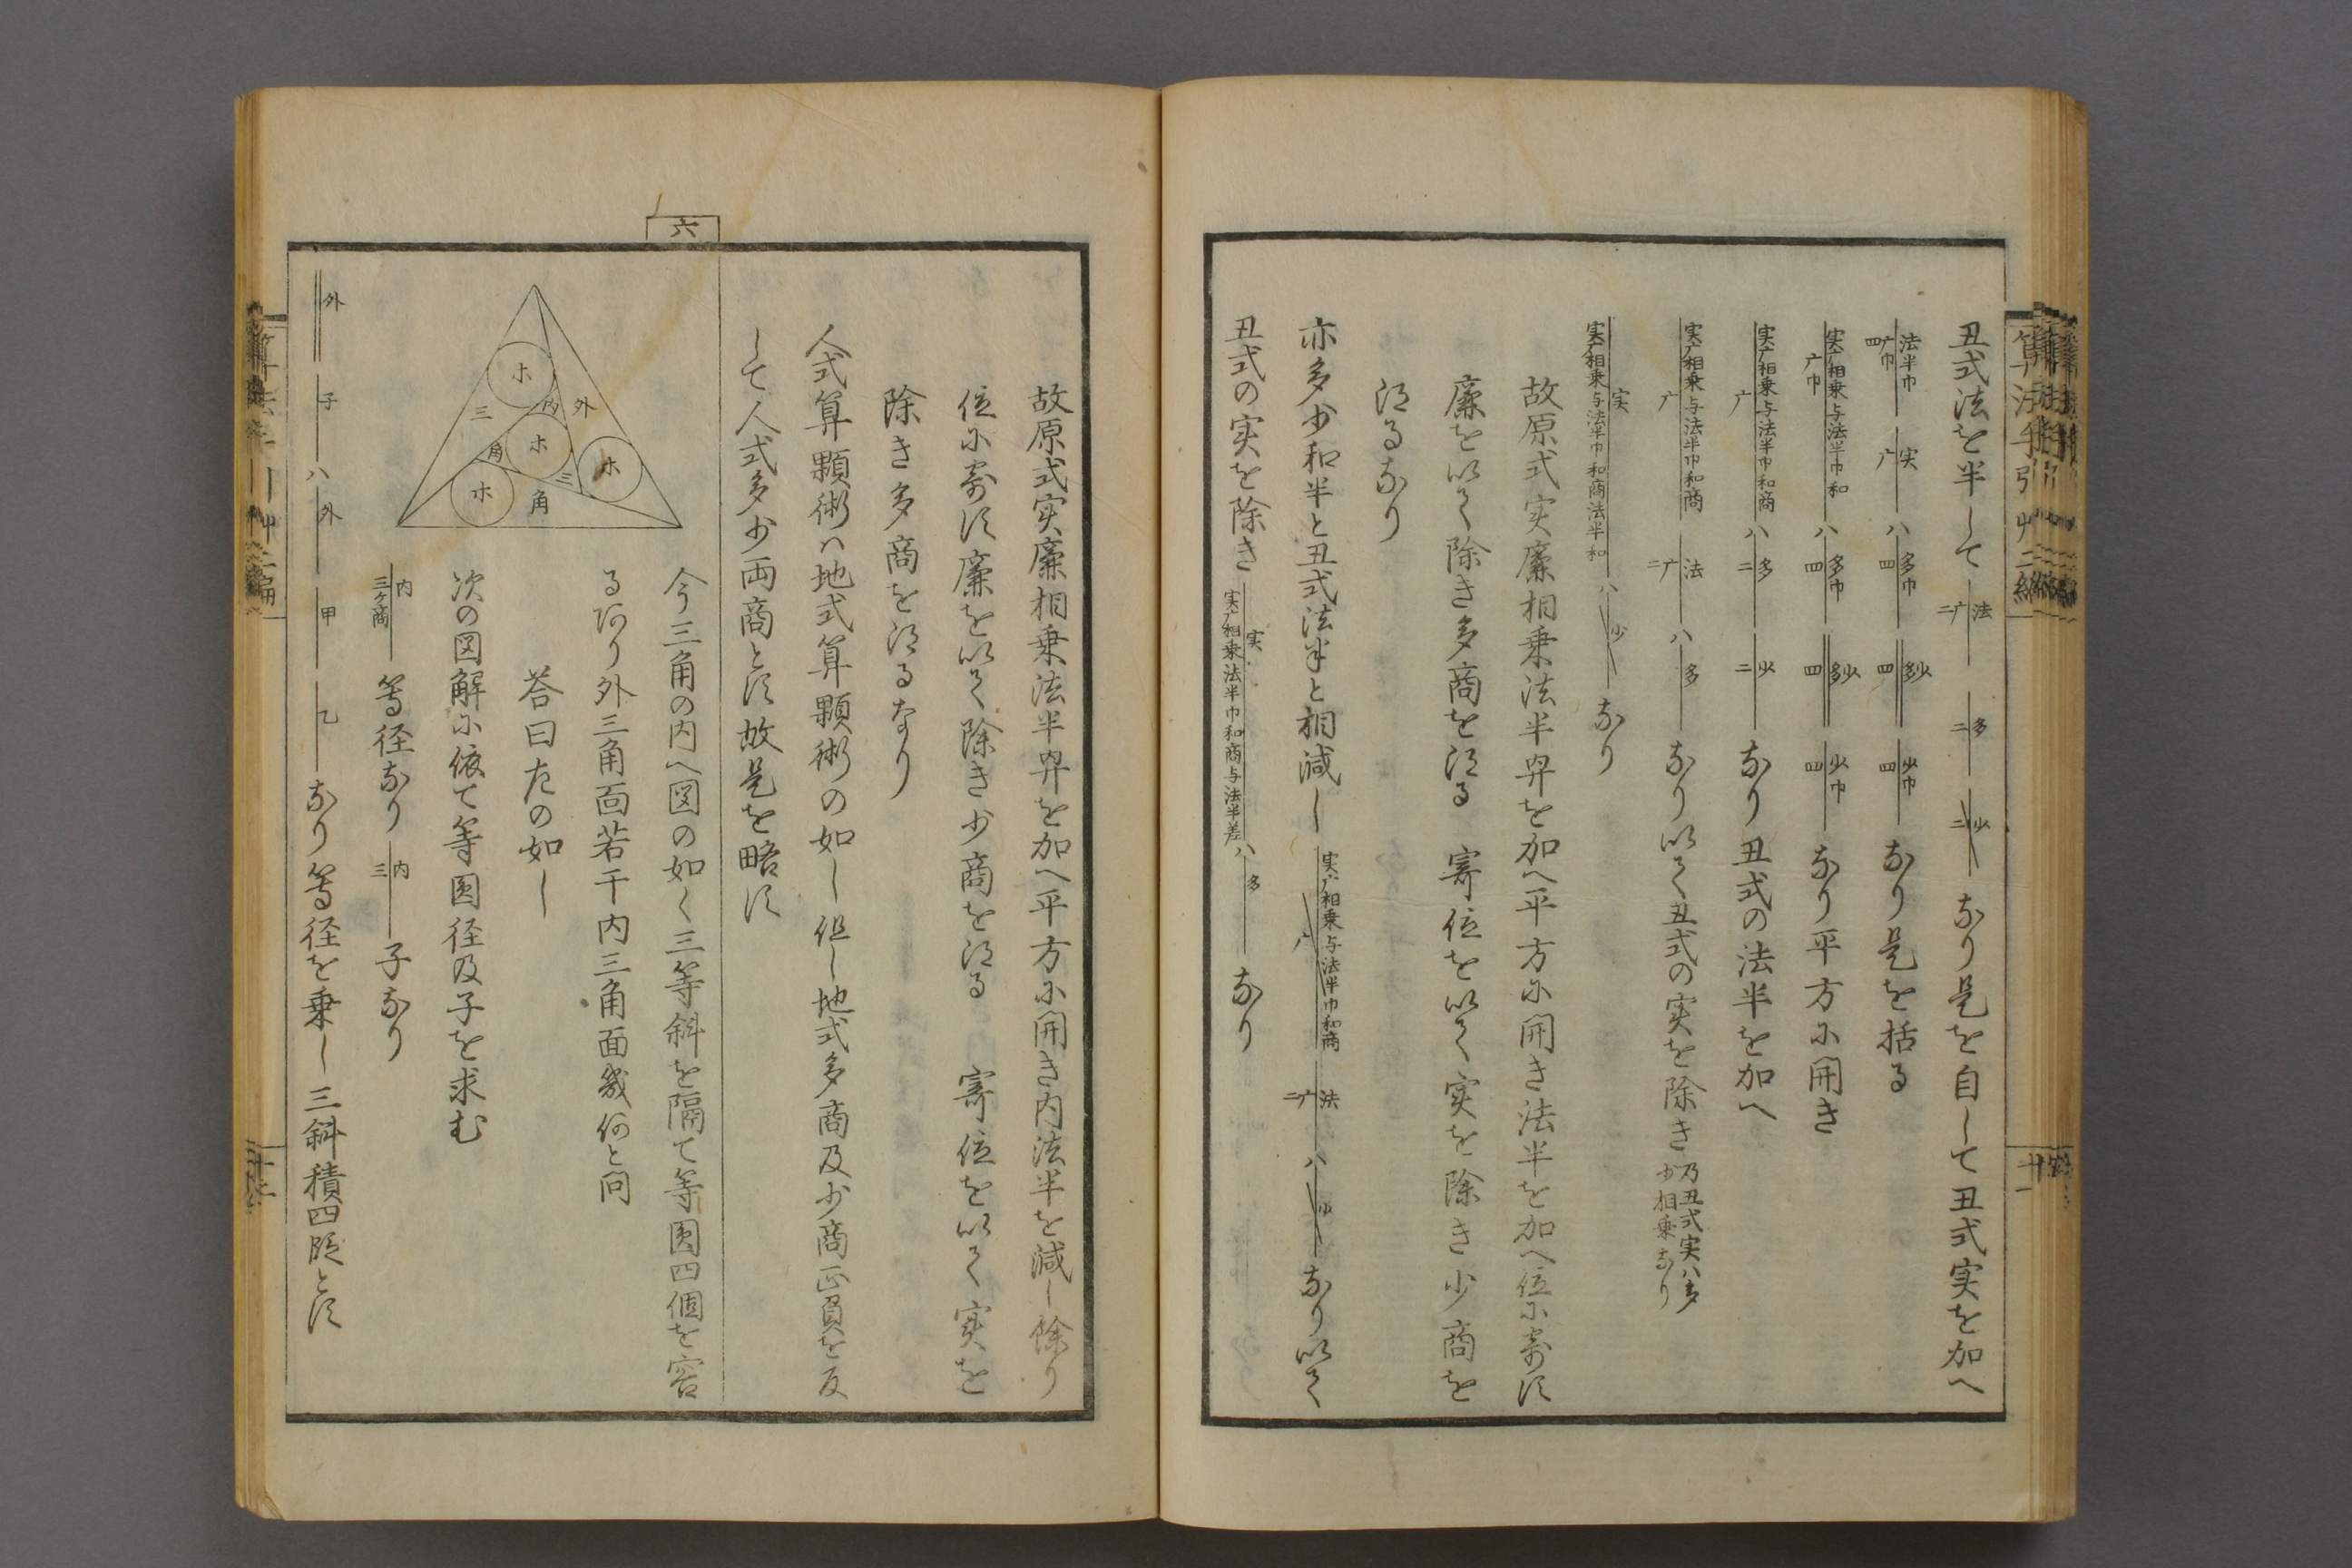 丑式法を半して 法二广 多二 少二 なり是を自して丑式実を加へ
法半巾四广巾 実广 ハ 多巾四 多少四 少巾四 なり是を括る
実广相乗与法半巾和广巾 ハ 多巾四 多少四 少巾四 なり平方に開き
実广相乗与法半巾和商广 ハ 多二 少二 なり丑式の法半を加へ
実广相乗与法半巾和商广 法二广 ハ 多 なり以て丑式の実を除き 乃丑式実ハ多少相乗なり
実 実广相乗与法半巾和商法半和 ハ 少 なり
故原式実廉相乗法半羃を加へ平方に開き法半を加へ位に寄す
廉を以て除き多商を得る 寄位を以て実を除き少商を
得るなり
亦多少和半と丑式法半と相減し 実广相乗与法半巾和商广 法二广 ハ 少 なり以て
丑式の実を除き 実 実广相乗法半巾和商与法半差 ハ 多 なり
故原式実廉相乗法半羃を加へ平方に開き内法半を減し除り
位に寄す廉を以て除き少商を得る 寄位を以て実を
除き多商を得るなり
人式算顆術ハ地式算顆術の如し但し地式多商及少商正負を反
して人式多少両商とす故是を略す
六
ホ
三
内
外
角
ホ
三
ホ
ホ
角
今三角の内へ図の如く三等斜を隔て等圓四個を容
る阿り外三角面若干内三角面幾何と問
答曰左の如し
次の図解に依て等圓径及子を求む
内三ケ商 等径なり 内三 子なり
外 子 ハ 外 甲 乙 なり等径を乗し三斜積四段とす